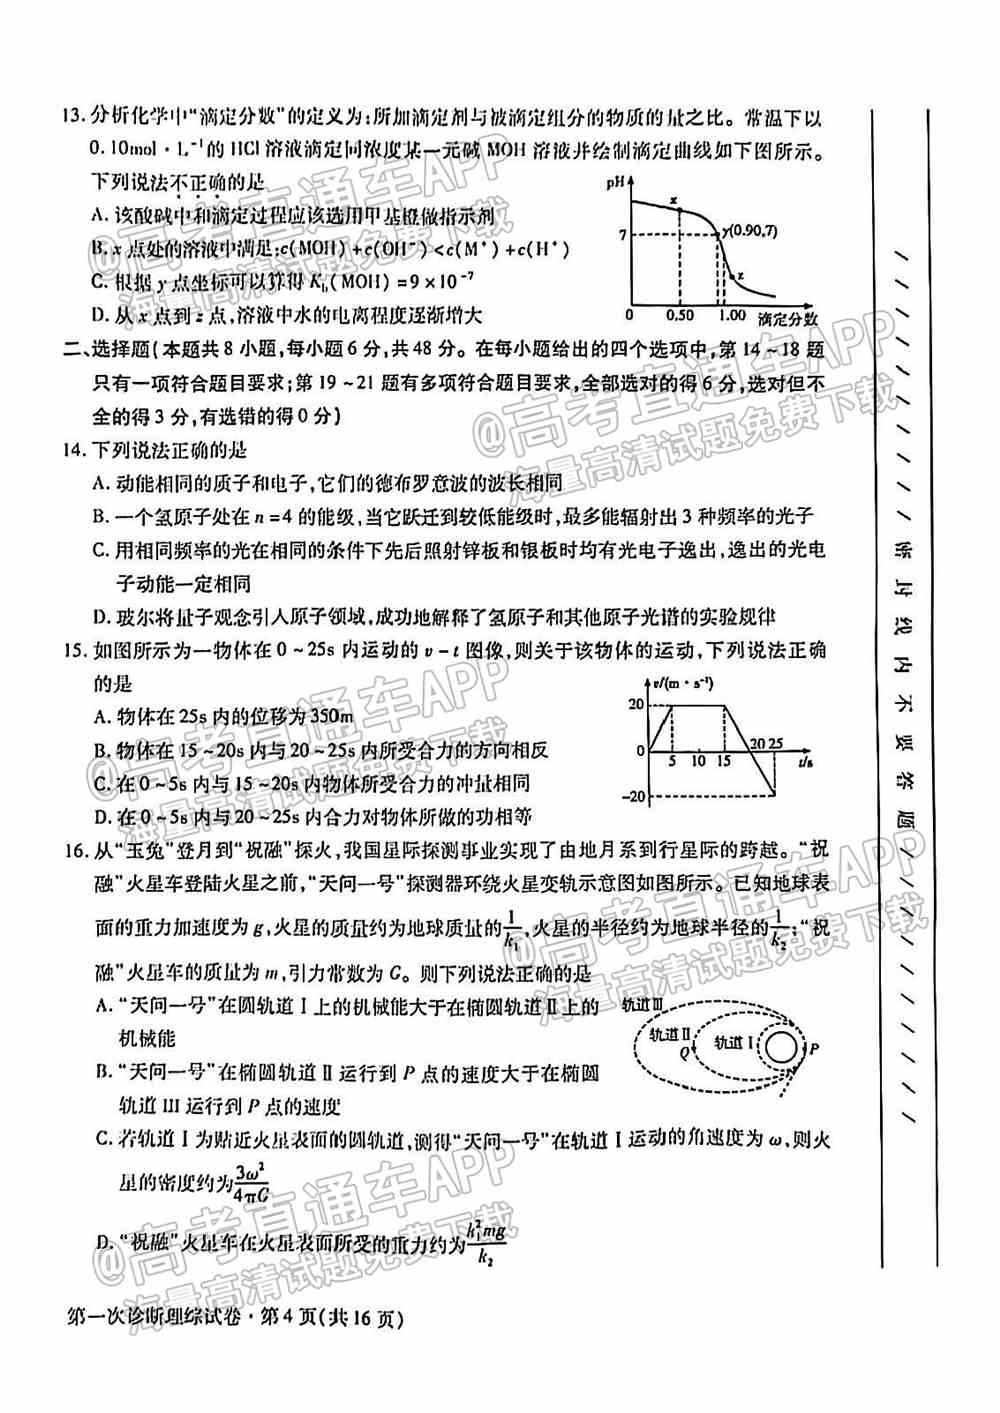 13. 分析化学中“滴定分数”的定义为：所加滴定剂与被滴定组分的物质的量之比。常温下以
0.10mol·L⁻¹的HCl溶液滴定同浓度某一元碱MOH溶液并绘制滴定曲线如下图所示。
下列说法不正确的是
A. 该酸碱中和滴定过程应该选用甲基橙做指示剂
B. x点处的溶液中满足：c(MOH)+c(OH⁻)<c(M⁺)+c(H⁺)
C. 根据y点坐标可以算得Kb(MOH)=9×10⁻⁷
D. 从x点到z点，溶液中水的电离程度逐渐增大
pH
7
x
y(0.90,7)
z
0 0.50 1.00 滴定分数
二、选择题(本题共8小题，每小题6分，共48分。在每小题给出的四个选项中，第14~18题
只有一项符合题目要求；第19~21题有多项符合题目要求，全部选对的得6分，选对但不
全的得3分，有选错的得0分)
14. 下列说法正确的是
A. 动能相同的质子和电子，它们的德布罗意波的波长相同
B. 一个氢原子处在n=4的能级，当它跃迁到较低能级时，最多能辐射出3种频率的光子
C. 用相同频率的光在相同的条件下先后照射锌板和银板时均有光电子逸出，逸出的光电
子动能一定相同
D. 玻尔将量子观念引入原子领域，成功地解释了氢原子和其他原子光谱的实验规律
15. 如图所示为一物体在0~25s内运动的v-t图像，则关于该物体的运动，下列说法正确
的是
A. 物体在25s内的位移为350m
B. 物体在15~20s内与20~25s内所受合力的方向相反
C. 在0~5s内与15~20s内物体所受合力的冲量相同
D. 在0~5s内与20~25s内合力对物体所做的功相等
v/(m·s⁻¹)
20
0
5 10 15
20 25
t/s
-20
16. 从“玉兔”登月到“祝融”探火，我国星际探测事业实现了由地月系到行星际的跨越。“祝
融”火星车登陆火星之前，“天问一号”探测器环绕火星变轨示意图如图所示。已知地球表
面的重力加速度为g，火星的质量约为地球质量的1/k₁，火星的半径约为地球半径的1/k₂；“祝
融”火星车的质量为m，引力常数为G。则下列说法正确的是
A. “天问一号”在圆轨道Ⅰ上的机械能大于在椭圆轨道Ⅱ上的
机械能
B. “天问一号”在椭圆轨道Ⅱ运行到P点的速度大于在椭圆
轨道Ⅲ运行到P点的速度
C. 若轨道Ⅰ为贴近火星表面的圆轨道，测得“天问一号”在轨道Ⅰ运动的角速度为ω，则火
星的密度约为3ω²/4πG
D. “祝融”火星车在火星表面所受的重力约为k₁²mg/k₂
轨道Ⅲ
轨道Ⅱ
轨道Ⅰ
Q
P
第一次诊断理综试卷·第4页(共16页)
密封线内不要答题
@高考直通车APP
海量高清试题免费下载
@高考直通车APP
海量高清试题免费下载
@高考直通车APP
海量高清试题免费下载
@高考直通车APP
海量高清试题免费下载
@高考直通车APP
海量高清试题免费下载